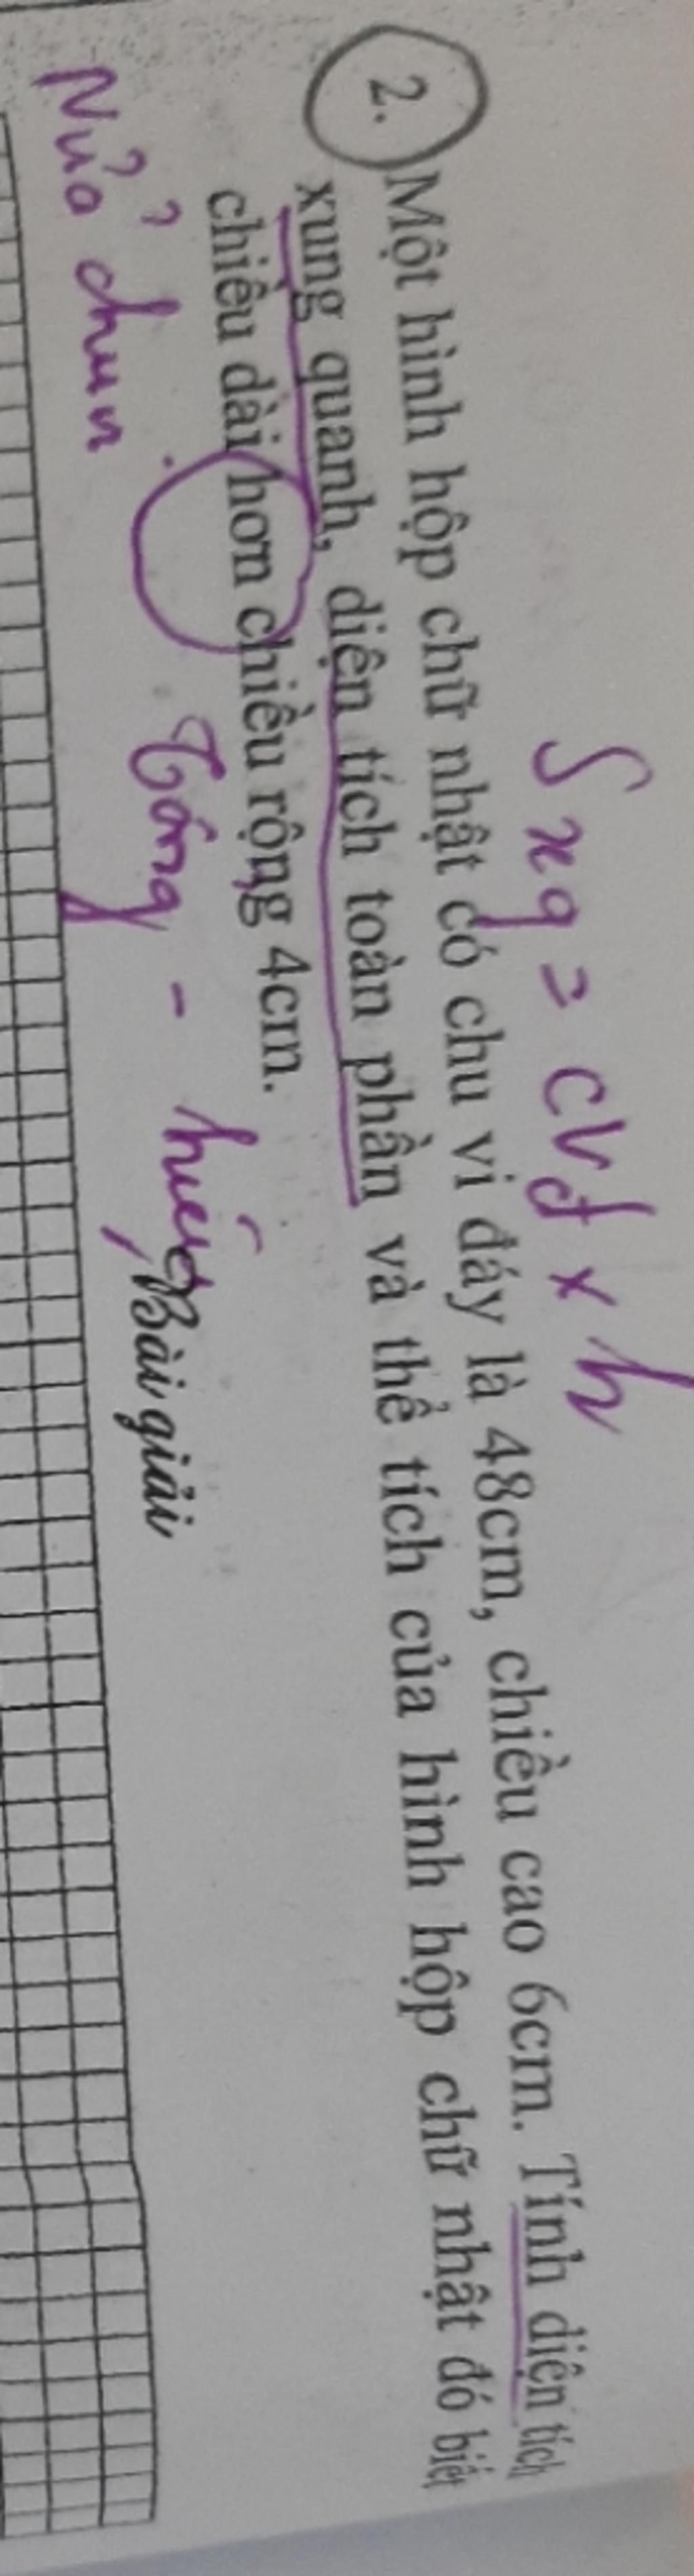 Sxq = cvđ x h
2. Một hình hộp chữ nhật có chu vi đáy là 48cm, chiều cao 6cm. Tính diện tích
xung quanh, diện tích toàn phần và thể tích của hình hộp chữ nhật đó biết
chiều dài hơn chiều rộng 4cm.
Tổng - hiệu
Bài giải
Nửa chu vi